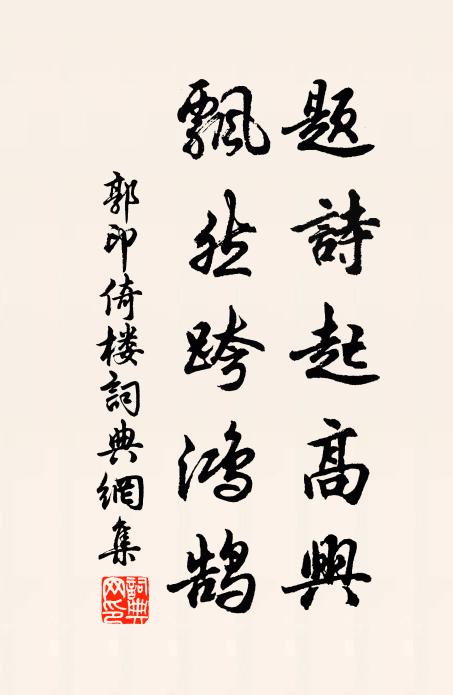 題詩起高興
飄然跨鴻鵠
郭印倚楼詞典網集
詞典網印